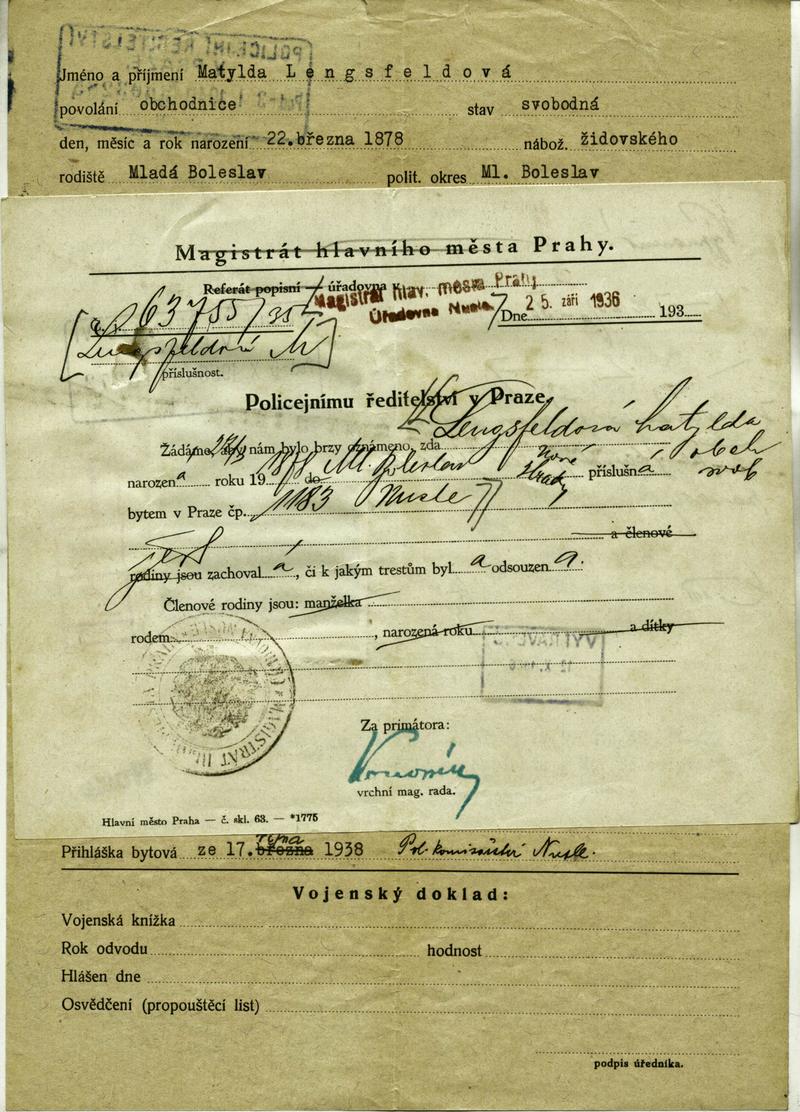 Jméno a příjmení Matylda Lengsfeldová
povolání obchodnice stav svobodná
den, měsíc a rok narození 22.března 1878 nábož. židovského
rodiště Mladá Boleslav polit. okres Ml. Boleslav
Magistrát hlavního města Prahy.
Referát popisní úřadovna Magistrát hlav. města Prahy
Úřadovna Nusle
63755/35 Dne 25. září 1936 193
Lengsfeldová M
příslušnost.
Policejnímu ředitelství v Praze.
Lengsfeldová Matylda
Žádáme, aby nám bylo brzy oznámeno, zda obch
narozena roku 19 1878 do Ml Boleslav Nové Hrady příslušná svob
bytem v Praze čp. 1183 Nusle
a členové
rodiny jsou zachovalá, či k jakým trestům byla odsouzena.
Členové rodiny jsou: manželka
rodem , narozená roku a dítky
VYPRAVENO
MAGISTRÁT
Za primátora:
vrchní mag. rada.
Hlavní město Praha — č. skl. 63. — *1775
Přihláška bytová ze 17. března října 1938 Pol. komisařství Nusle.
Vojenský doklad:
Vojenská knížka
Rok odvodu hodnost
Hlášen dne
Osvědčení (propouštěcí list)
podpis úředníka.